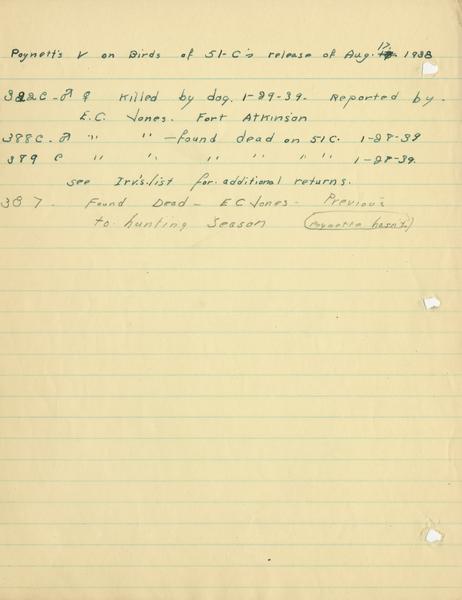 Poynett's V on Birds of 51-C's release of Aug. 17 1938
382C - ♂ ♀ Killed by dog. 1-29-39. Reported by.
E.C. Jones. Fort Atkinson
388C. ♂ " " - found dead on 51C. 1-28-39
379 C " " " " " " 1-28-39.
see Irv's list for additional returns.
387. Found Dead - E C Jones - Previous
to hunting season (Poynette hasn't.)